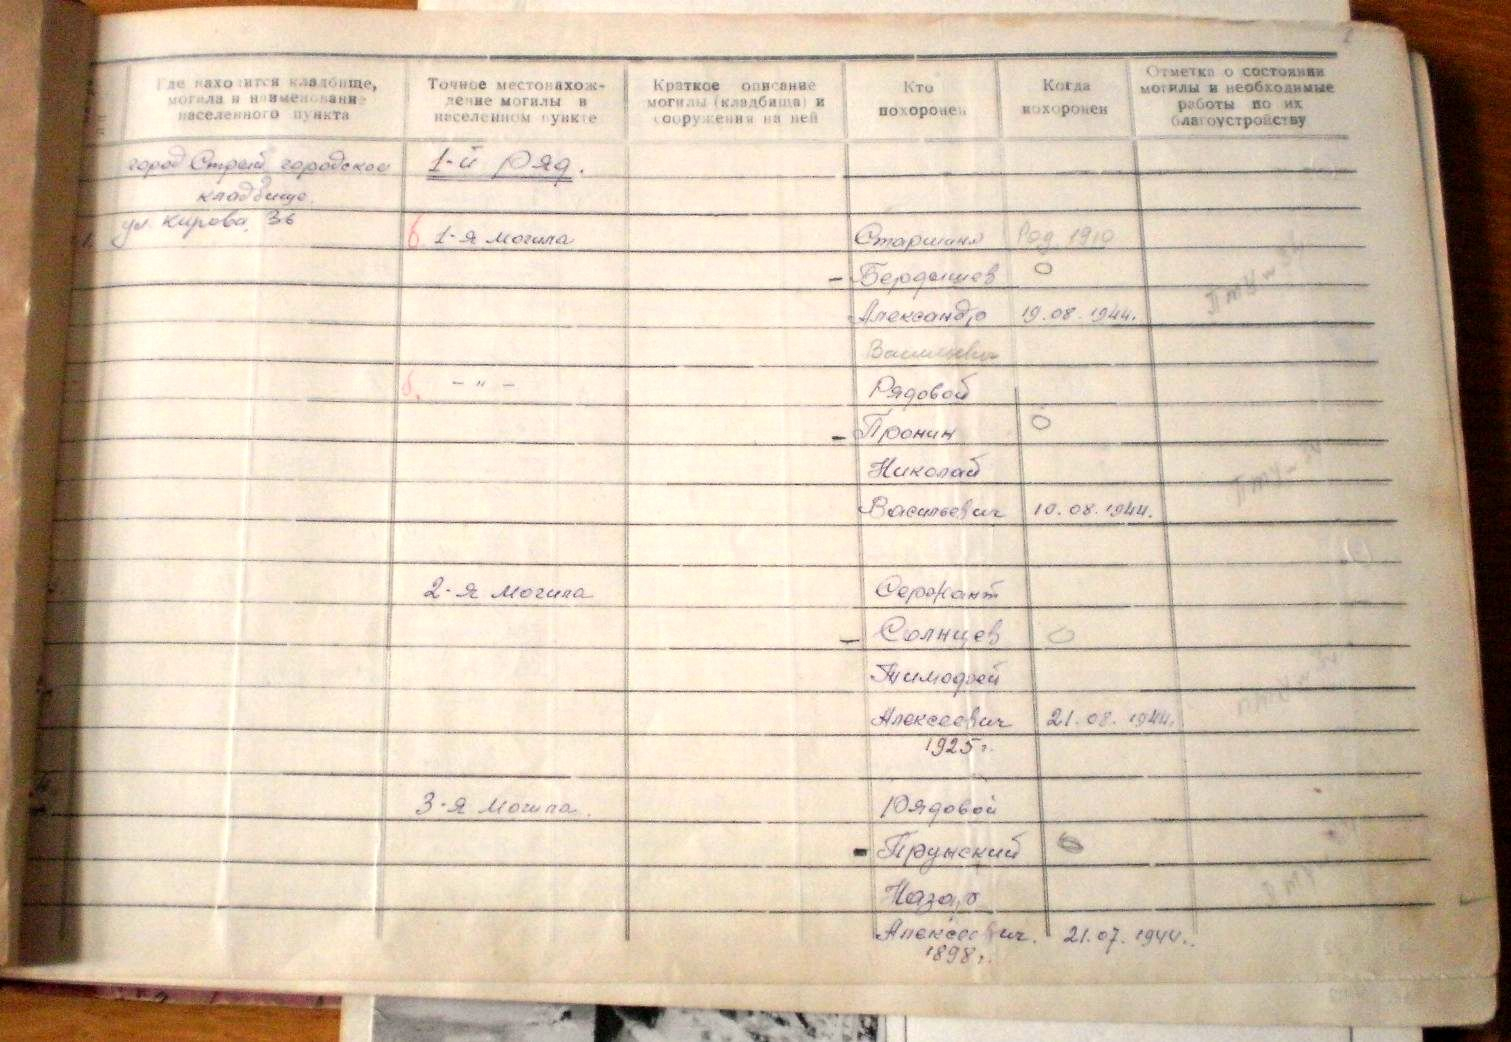 Где находится кладбище,
могила и наименование
населенного пункта
Точное местонахож-
дение могилы в
населенном пункте
Краткое описание
могилы (кладбища) и
сооружения на ней
Кто
похоронен
Когда
похоронен
Отметка о состоянии
могилы и необходимые
работы по их
благоустройству
город Стрый городское
кладбище.
ул. Кирова, 3в
1-й Ряд.
1. 1-я могила Старшина Род 1910
- Бердышев О
Александр 19.08.1944.
Васильевич
- " - Рядовой
- Пронин О
Николай
Васильевич 10.08.1944.
2-я могила Сержант
- Солнцев О
Тимофей
Алексеевич 21.08.1944.
1925г.
3-я могила. Рядовой
- Прунский
Назар
Алексеевич. 21.07.1944.
1898г.